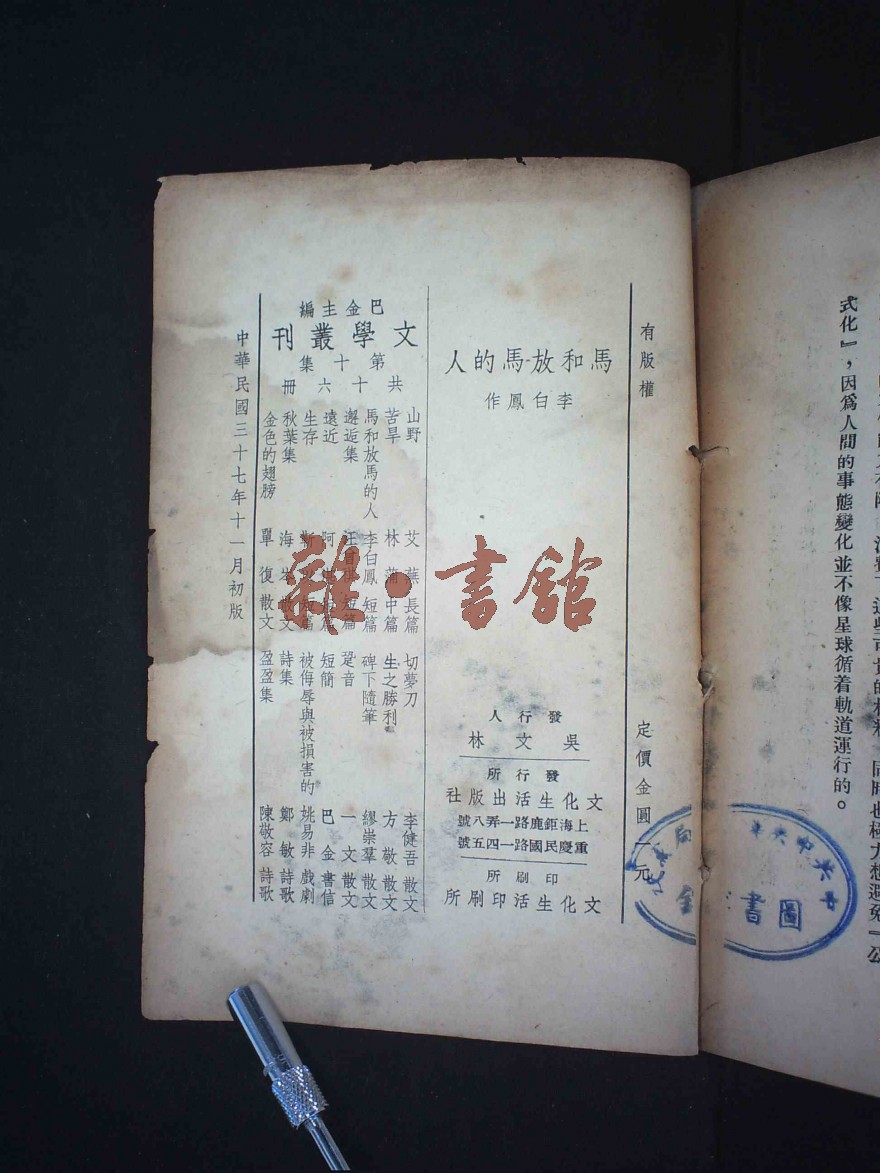 式化』，因爲人間的事態變化並不像星球循着軌道運行的。
同時也極力想避免『公
圖書
有版權
定價金圓一元
馬和放馬的人
李白鳳作
發行人
吳文林
發行所
文化生活出版社
上海鉅鹿路一弄八號
重慶民國路一四五號
印刷所
文化生活印刷所
巴金主編
文學叢刊
第十集
共十六冊
山野 艾蕪 長篇 切夢刀 李健吾 散文
苦旱 林蒲 中篇 生之勝利 方敬 散文
馬和放馬的人 李白鳳 短篇 碑下隨筆 繆崇羣 散文
邂逅集 短篇 跫音 一文 散文
遠近 阿 短簡 巴金 書信
生存 短篇 被侮辱與被損害的 姚易非 戲劇
秋葉集 海岑 散文 詩集 鄭敏 詩歌
金色的翅膀 單復 散文 盈盈集 陳敬容 詩歌
中華民國三十七年十一月初版
雜·書館